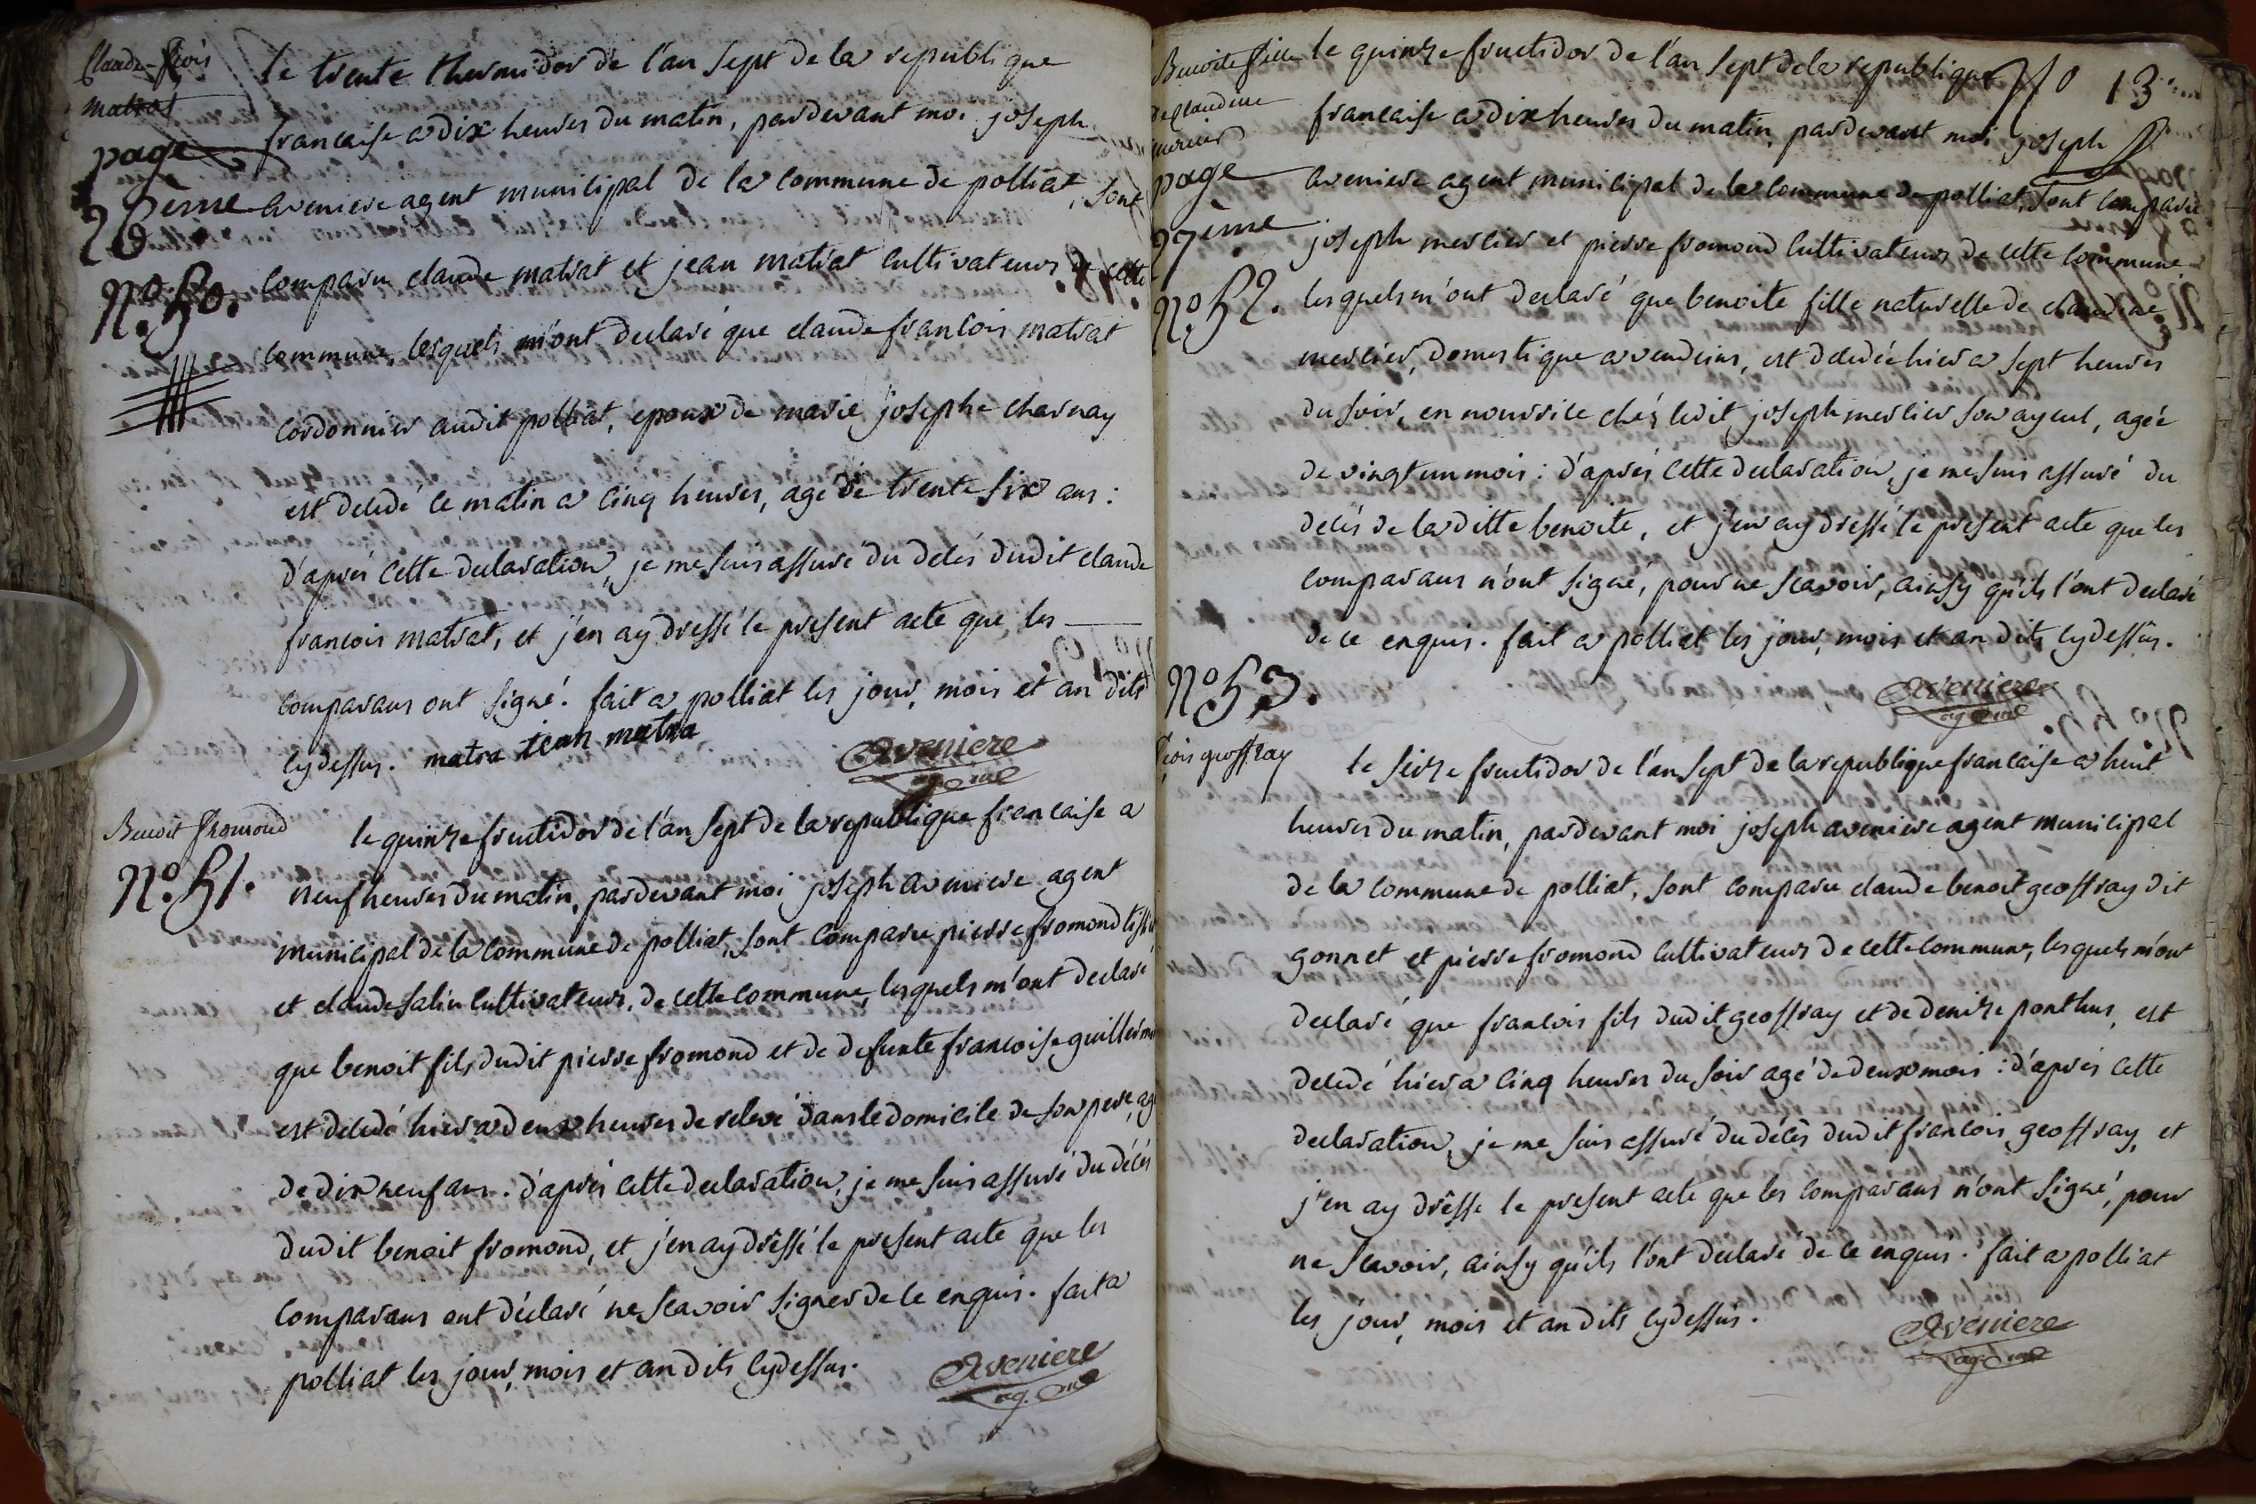 Claude-frçois
matrat
page
26eme
No. 50.
le trente thermidor de l'an sept de la republique
francaise a dix heures du matin, pardevant moi joseph
aveniere agent municipal de la commune de polliat, sont
comparu claude matrat et jean matrat cultivateurs de cette
commune, lesquels m'ont declaré que claude francois matrat
cordonnier audit polliat, epoux de marie josephe charnay
est decedé ce matin a cinq heures, agé de trente six ans :
d'aprés cette declaration, je me suis assuré du decés dudit claude
francois matrat, et j'en ay dressé le present acte que les
comparans ont signé. fait a polliat les jour, mois et an dits
cydessus. matra jean matra
Aveniere
ag. mal
Benoit fromond
No. 51.
le quinze fructidor de l'an sept de la republique francaise a
neuf heures du matin, pardevant moi joseph aveniere agent
municipal de la commune de polliat, sont comparu pierre fromond
et claude salin cultivateurs, de cette commune, lesquels m'ont declaré
que benoit fils dudit pierre fromond et de defunte francoise
est decedé hier a deux heures de relevé dans le domicile de son pere, agé
de dix neuf ans. d'aprés cette declaration, je me suis assuré du décés
dudit benoit fromond, et j'en ay dréssé le present acte que les
comparans ont déclaré ne scavoir signer de ce enquis. fait a
polliat les jour, mois et an dits cydessus.
Aveniere
ag. mal
13
Benoite fille
de claudine
mercier
page
27eme
No. 52.
le quinze fructidor de l'an sept de la republique
francaise a dix heures du matin, pardevant moi joseph
aveniere agent municipal de la commune de polliat, sont comparu
joseph mercier et pierre fromond cultivateurs de cette commune
lesquels m'ont declaré que benoite fille naturelle de claudine
mercier, domestique a vandeins, est decedée hier a sept heures
du soir, en nourrice chés ledit joseph mercier son ayeul, agée
de vingt un mois : d'aprés cette declaration, je me suis assuré du
decés de la ditte benoite, et j'en ay dressé le present acte que les
comparans n'ont signé, pour ne scavoir, ainsy qu'ils l'ont declaré
de ce enquis. fait a polliat les jour, mois et an dits cydessus.
Aveniere
ag. mal
No. 53.
frçois geoffray
le seize fructidor de l'an sept de la republique francaise a huit
heures du matin, pardevant moi joseph aveniere agent municipal
de la commune de polliat, sont comparu claude benoit geoffray dit
gonnet et pierre fromond cultivateurs de cette commune, lesquels m'ont
declaré que francois fils dudit geoffray et de denize ponthus, est
decedé hier a cinq heures du soir agé de deux mois : d'aprés cette
declaration, je me suis assuré du décés dudit francois geoffray, et
j'en ay dréssé le present acte que les comparans n'ont signé, pour
ne scavoir, ainsy qu'ils l'ont declaré de ce enquis. fait a polliat
les jour, mois et an dits cydessus.
Aveniere
ag. mal